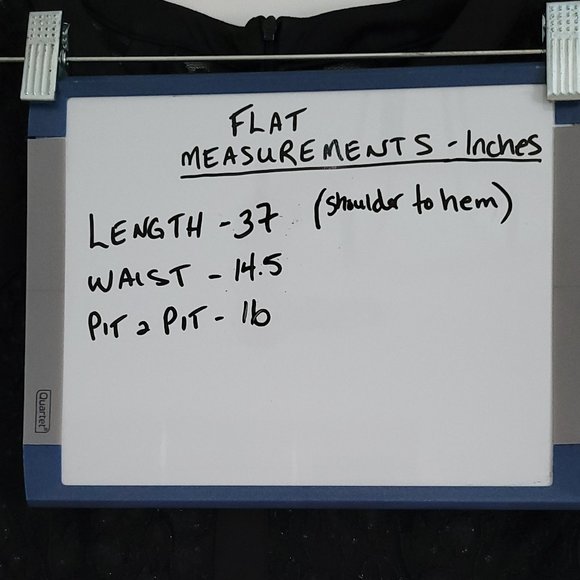 FLAT
MEASUREMENTS - Inches
LENGTH - 37 (shoulder to hem)
WAIST - 14.5
PIT 2 PIT - 16
Quartet